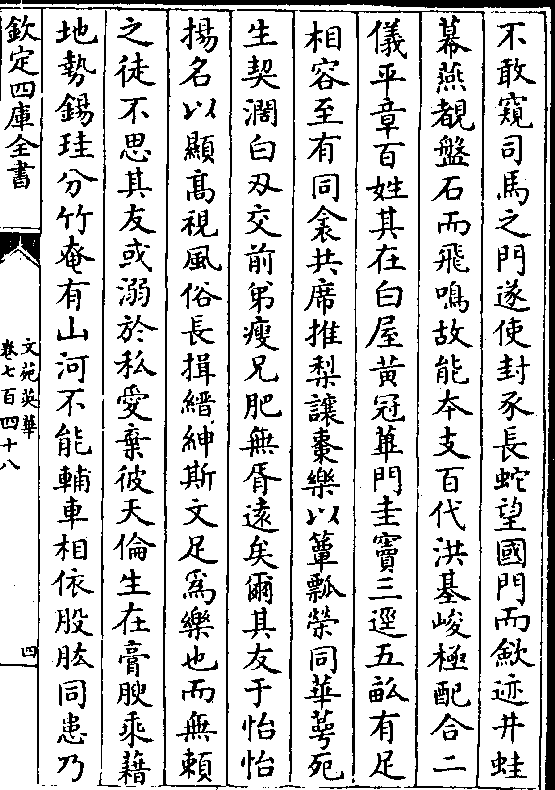 不敢窺司馬之門遂使封豕長蛇望國門而歛迹井蛙
幕燕覩盤石而飛鳴故能夲支百代洪基峻極配合二
儀平章百姓其在白屋黄冠蓽門圭竇三逕五畝有足
相容至有同衾共席推梨讓棗樂以簞瓢榮同華萼死
生契濶白刄交前弟瘦兄肥無胥遠矣爾其友于怡怡
揚名以顯髙視風俗長揖縉紳斯文足為樂也而無賴
之徒不思其友或溺於私愛棄彼天倫生在膏腴乘藉
地勢錫珪分竹奄有山河不能輔車相依股肱同患乃
欽定四庫全書
文苑英華
卷七百四十八
四